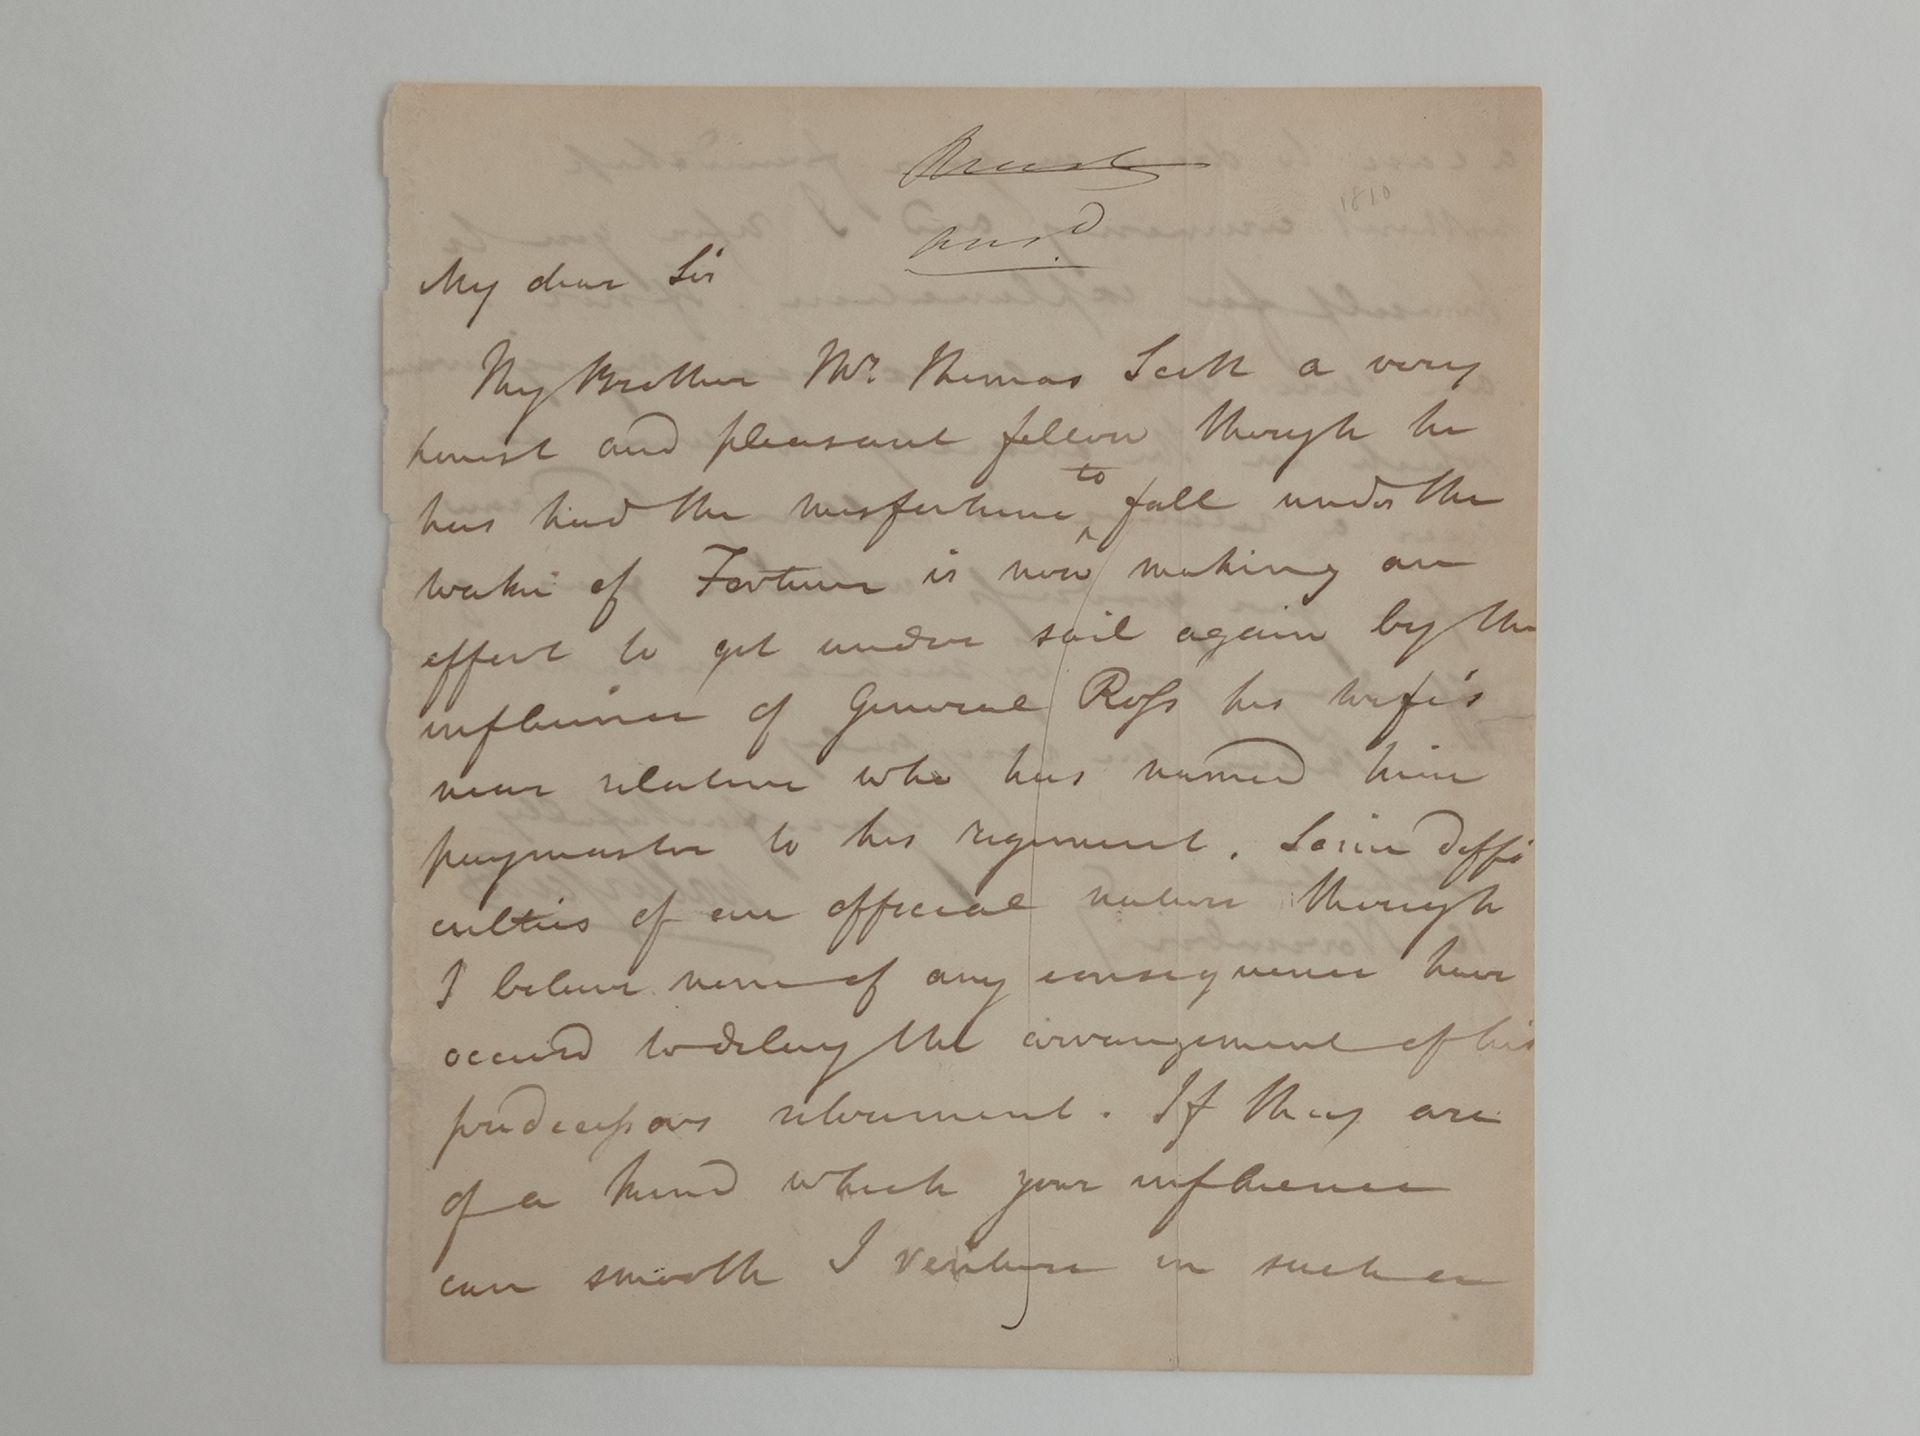 ans.d
1810
My dear Sir
My Brother Mr. Thomas Scott a very
honest and pleasant fellow though he
has had the misfortune to fall under the
of Fortune is now making an
effort to get under sail again by the
influence of General Ross his wife's
near relative who has named him
paymaster to his regiment. Some diffi
culties of an official nature though
I believe none of any consequence have
occurd to delay the arrangement of his
predecessors retirement. If they are
of a kind which your influence
can smooth I venture in such a